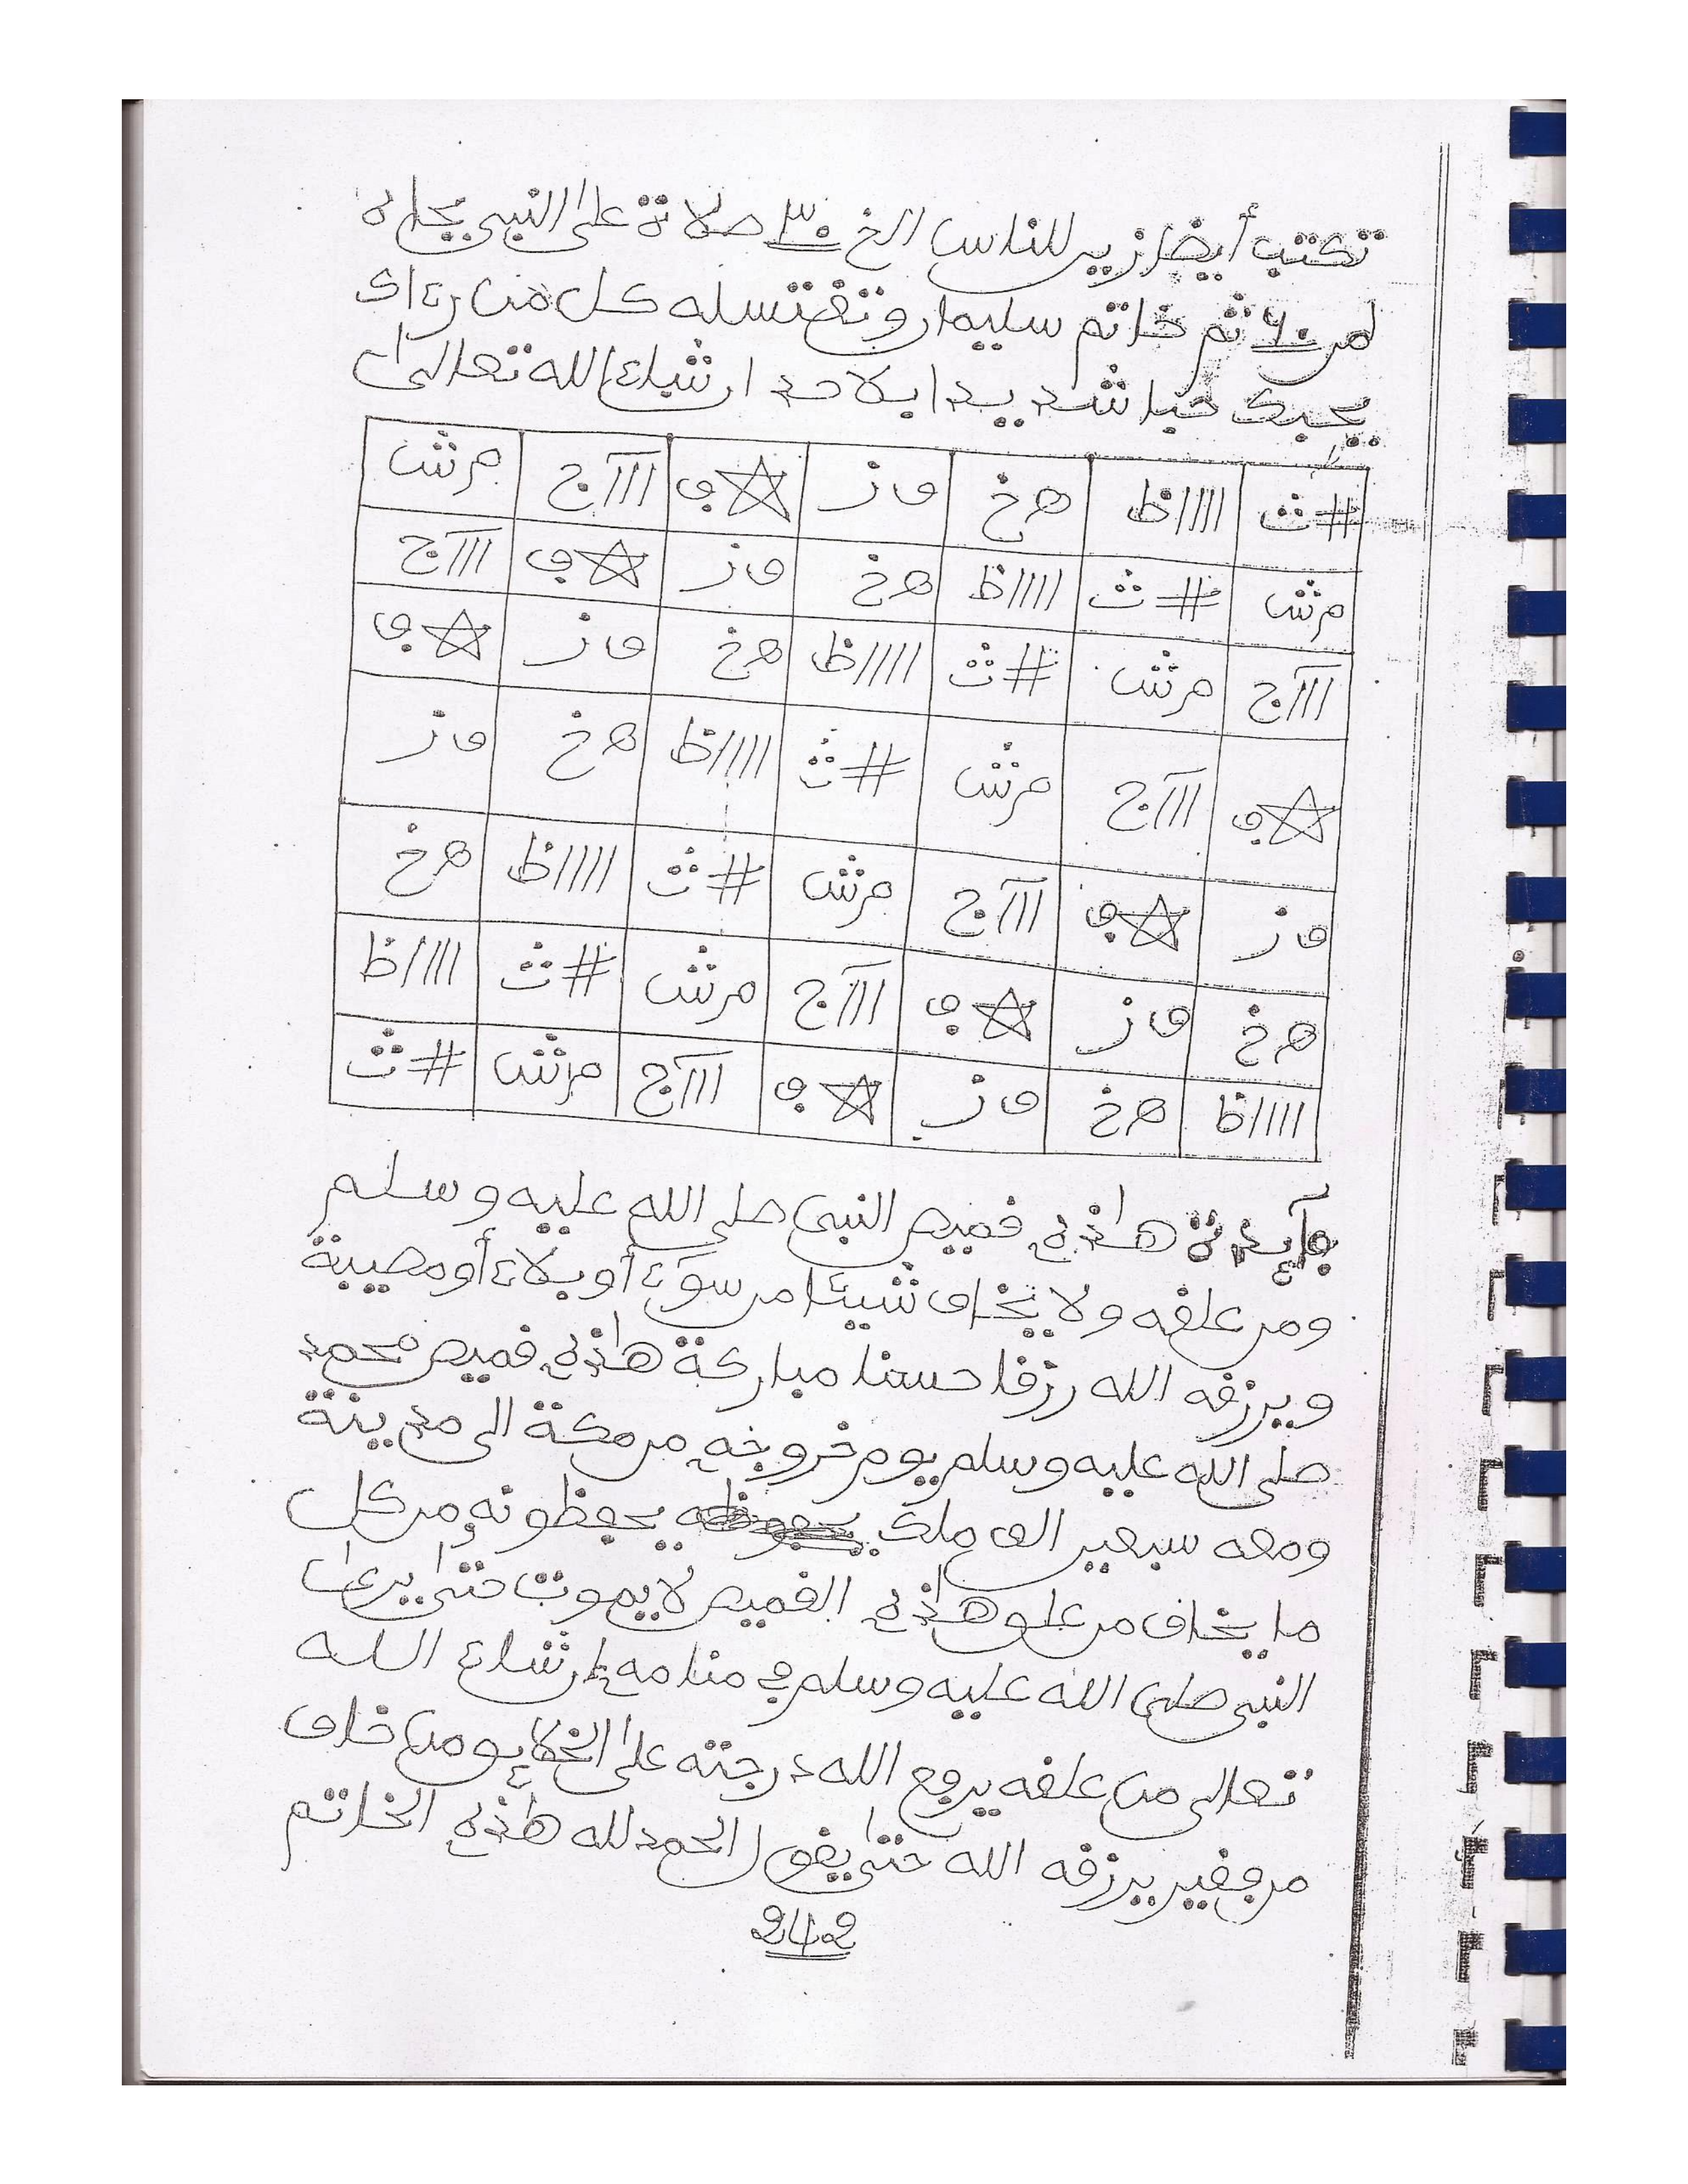 تكتب أيضا زين للناس الخ ٣٠ صلاة على النبي بجاه
لمن ٦٠ ثم خاتم سليمان وتغتسله كل من رءاك
يحبك حبا شديدا بلا حد ان شاء الله تعالى
#ث ااااظ هـخ ف ز ☆ب ااآج م ش
م ش #ث ااااظ هـخ ف ز ☆ب ااآج
ااآج م ش #ث ااااظ هـخ ف ز ☆ب
☆ب ااآج م ش #ث ااااظ هـخ ف ز
ف ز ☆ب ااآج م ش #ث ااااظ هـخ
هـخ ف ز ☆ب ااآج م ش #ث ااااظ
ااااظ هـخ ف ز ☆ب ااآج م ش #ث
فآيدة هاذه قميص النبي صلى الله عليه وسلم
ومن علقه ولا يخاف شيئا من سوٓء أو بلاء أو مصيبة
ويرزقه الله رزقا حسنا مباركة هاذه قميص محمد
صلى الله عليه وسلم يوم خروجه من مكة الى مدينة
ومعه سبعين الف ملك يحفظونه من كل
ما يخاف من علق هاذه القميص لا يموت حتى يرى
النبي صلى الله عليه وسلم في منامه إن شاء الله
تعالى من علقه يرفع الله درجته على ومن خاف
من فقير يرزقه الله حتى يقول الحمد لله هاذه الخاتم
242